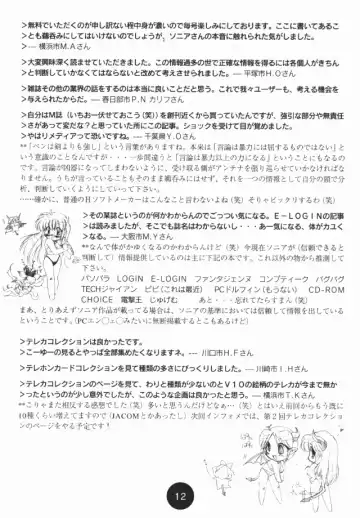 >無料でいただくのが申し訳ない程中身が濃いので毎号楽しみにしております。ここに書いてあるこ
とも鵜呑みにしてはいけないのでしょうが、ソニアさんの本音に触れられた気がしました。
>--- 横浜市M.Aさん
>大変興味深く読ませていただきました。この情報過多の世で正確な情報を得るには各個人がきちん
と判断していかなくてはならないと改めて考えさせられました。--- 平塚市H.Oさん
>雑誌その他の業界の話をするのは本当に良いことだと思う。これで我々ユーザーも、考える機会を
与えられたからだ。--- 春日部市P.N カリフさん
>自分はM誌(いちお一伏せておこう(笑))を創刊近くから買っていたんですが、強引な部分や無責任
>さがあって変だな?と思っていた所にこの記事。ショックを受けて目が覚めました。
>やはりメディアって恐いですね。--- 千葉県Y.Oさん
**「ペンは剣よりも強し」という言葉がありますね。本来は「言論は暴力には屈するものではない」と
いう意識のことなんですが・・・一歩間違うと「言論は暴力以上の力になる」ということにもなるの
です。言論が凶器になってしまわないように、受け取る側がアンテナを張り巡らせていかなければな
りません。うちが言っていることもそのまま鵜呑みにはせず、それを一つの情報として自分の頭で分
析、判断していくようにしていって下さい。
……確かに、普通の同人ソフトメーカーはこんなこと言わないよね(笑)そりゃビックリするわ(笑)
>その某誌というのが何かわからんのでごっつい気になる。E-LOGINの記事
>は読みましたが、そこでも誌名はわからないし・・・あー気になる、体がカユく
>なる。--- 大阪市M.Yさん
**なんで体がかゆくなるのかわからんけど(笑)今現在ソニアが(信頼できると
判断して)情報提供しているのは主に下記の本です。これ以外の物から推測して
下さい。
パソパラ LOGIN E-LOGIN ファンタジェンヌ コンプティーク バグバグ
TECHジャイアン ピピ(これは最近) PCドルフィン(もうない) CD-ROM
CHOICE 電撃王 じゅげむ あと・・・忘れてたらすまん(笑)
まあ、とりあえずソニア作品が載ってる場合は、ソニアの基準においては信頼して情報を出している
ということです。(PCエン○ェ○みたいに無断掲載するとこもあるけど)
>テレカコレクションは良かったです。
>こーゆーの見るとやっぱ全部集めたくなりますネ。--- 川口市H.Fさん
>テレホンカードコレクションを見て種類の多さにびっくりしました。--- 川崎市I.Hさん
>テレカコレクションのページを見て、わりと種類が少ないのとV10の絵柄のテレカが今まで無か
>ったというのが少し意外でしたが、このような企画は良かったと思う。--- 横浜市T.Kさん
**こりゃまた相反する感想でした(笑)多いと思うんだけどなぁ…(笑)とはいえ前回からもう既に
10種くらい増えてますので(JACOMとかあったし)次回インフォメでは、第2回テレカコレクション
のページをやる予定です!
12